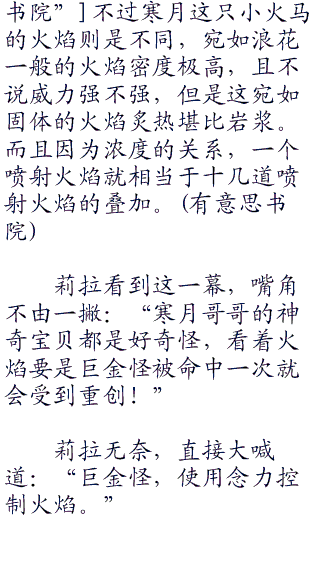 书院”] 不过寒月这只小火马
的火焰则是不同，宛如浪花
一般的火焰密度极高，且不
说威力强不强，但是这宛如
固体的火焰炙热堪比岩浆。
而且因为浓度的关系，一个
喷射火焰就相当于十几道喷
射火焰的叠加。(有意思书
院)
莉拉看到这一幕，嘴角
不由一撇：“寒月哥哥的神
奇宝贝都是好奇怪，看着火
焰要是巨金怪被命中一次就
会受到重创！”
莉拉无奈，直接大喊
道：“巨金怪，使用念力控
制火焰。”